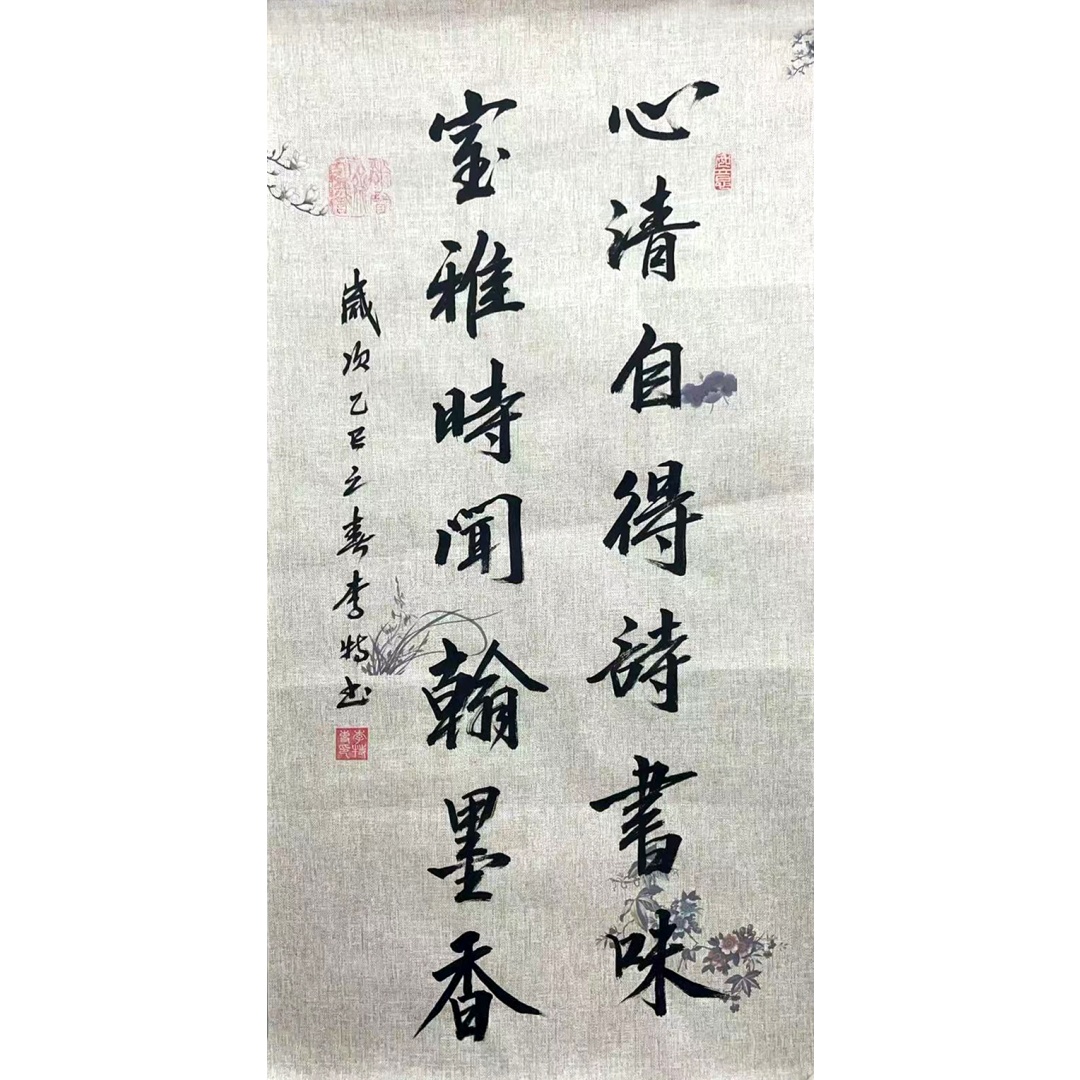 心清自得詩書味
室雅時聞翰墨香
歲次乙巳之春李特书